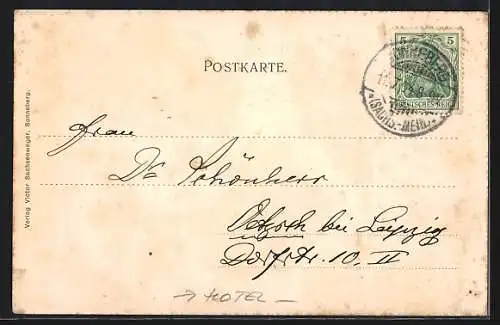 POSTKARTE.
5 5
(SACHS.-MEIN.)
Frau
Dr Schönherr
Oetzsch bei Leipzig
Dorfstr. 10. II
→ HOTEL –
Verlag Victor Sachsenweger, Sonneberg.